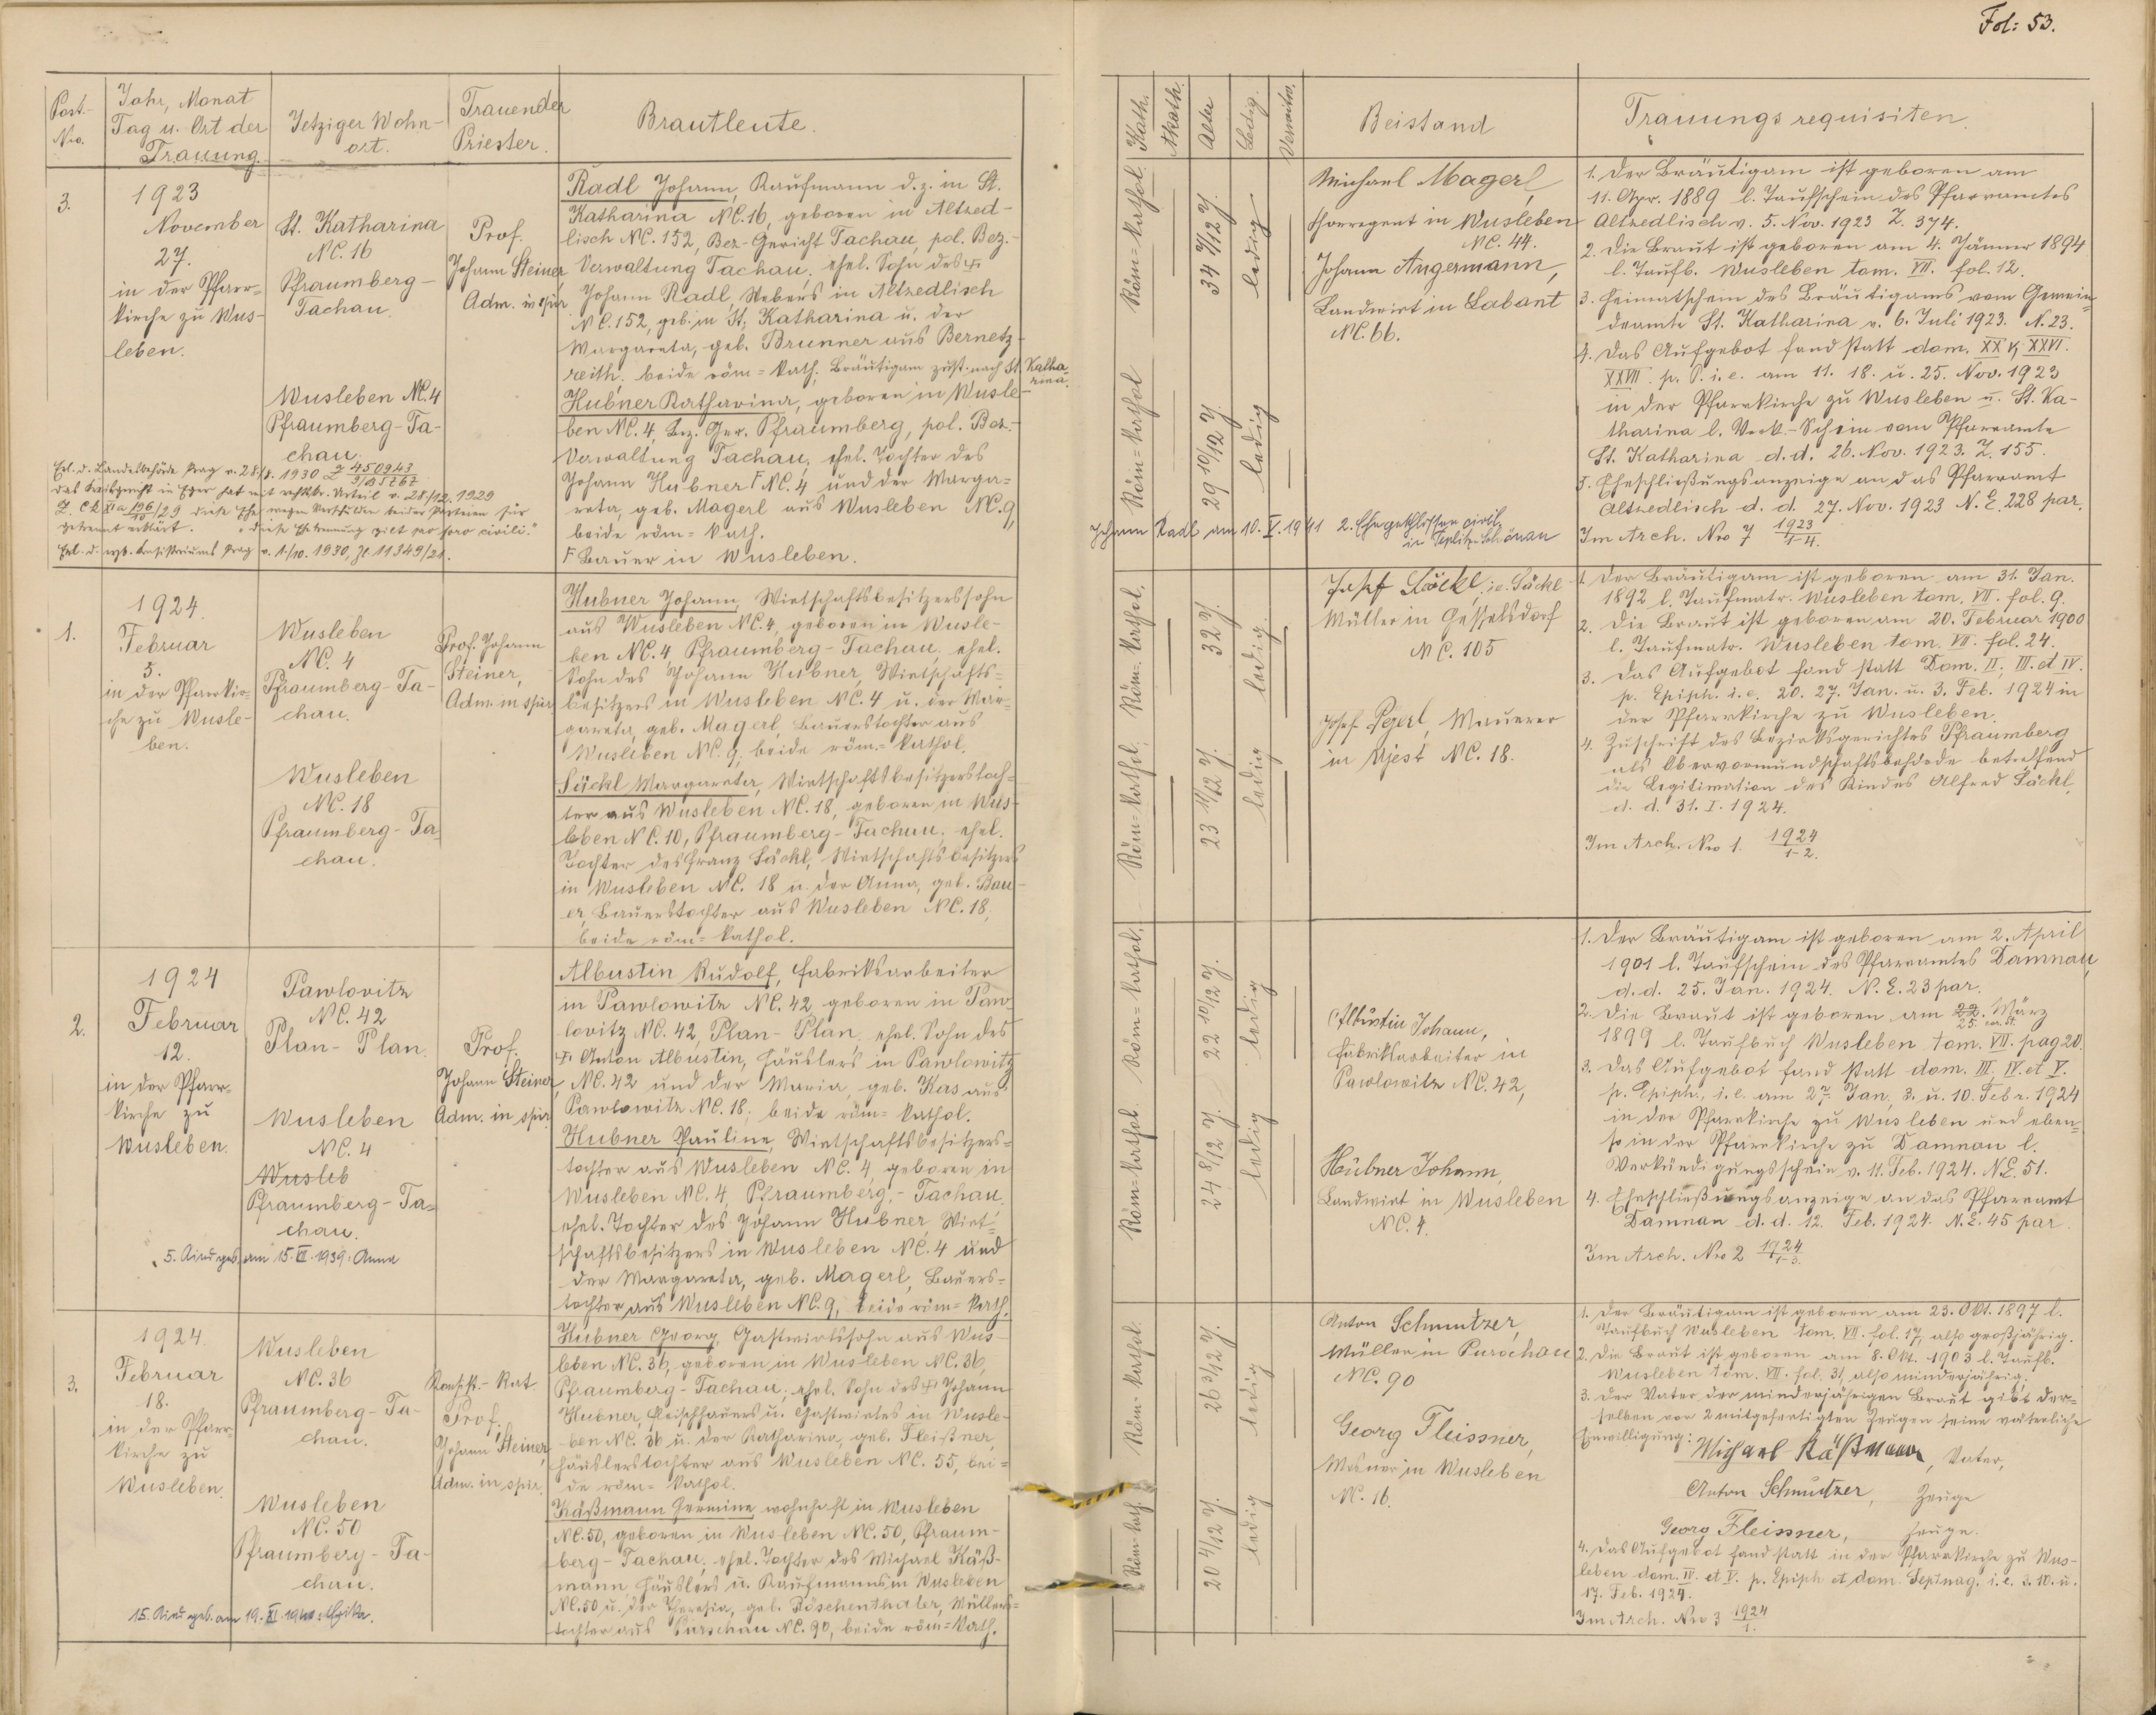 Fol: 53.
Post-Nro.
Jahr, Monat
Tag u. Ort der
Trauung.
Jetziger Wohn-
ort.
Trauender
Priester.
Brautleute.
Kath.
Akath.
Alter
Ledig.
Verwitw.
Beistand
Trauungsrequisiten.
3.
1923
November
27.
in der Pfarr-
kirche zu Wus-
leben.
St. Katharina
NC. 16
Pfraumberg-
Tachau.
Wusleben NC. 4
Pfraumberg-Ta-
chau.
Prof.
Johann Steiner,
Adm. in spir.
Radl Johann, Kaufmann d. z. in St.
Katharina NC. 16, geboren in Altzed-
lisch NC. 152, Bez-Gericht Tachau, pol. Bez.-
Verwaltung Tachau, ehel. Sohn des †
Johann Radl, Webers in Altzedlisch
NC. 152, geb. in St. Katharina u. der
Margareta, geb. Brunner aus Bernetz-
reith, beide röm=kath. Bräutigam zust. nach St. Katha-
rina.
Hubner Katharina, geboren in Wusle-
ben NC. 4, Bez. Ger. Pfraumberg, pol. Bez.-
Verwaltung Tachau, ehel. Tochter des
Johann Hubner F NC. 4 und der Marga=
reta, geb. Magerl aus Wusleben NC. 9,
beide röm=kath.
F Bauer in Wusleben.
Erl. d. Landesbehörde Prag v. 28./8. 1930
das Kreisgericht in Eger hat mit Urteil v. 28/12. 1929
diese Ehe wegen Verschulden beider Parteien für
getrennt erklärt. "diese Ehetrennung gilt pro foro civili."
Erl. d. Konsistoriums Prag v. 1./10. 1930, Zl. 11349/21.
Röm=kathol.
34 7/12 J.
ledig
Röm=kathol
29 10/12 J.
ledig
Michael Magerl,
Chorregent in Wusleben
NC. 44.
Johann Angermann,
Landwirt in Labant
NC. 66.
Johann Radl am 10. V. 1941 2. Ehe geschlossen civil.
in Teplitz-Schönau
1. Der Bräutigam ist geboren am
11. Apr. 1889 l. Taufschein des Pfarramtes
Altzedlisch v. 5. Nov. 1923 Z. 374.
2. Die Braut ist geboren am 4. Jänner 1894
l. Taufb. Wusleben tom. VII. fol. 12.
3. Heimatschein des Bräutigams vom Gemein-
deamte St. Katharina v. 6. Juli 1923. N. 23.
4. Das Aufgebot fand statt dom. XXV, XXVI.
XXVII. p. P. i. e. am 11. 18. u. 25. Nov. 1923
in der Pfarrkirche zu Wusleben u. St. Ka-
tharina l. Verk.-Schein vom Pfarramte
St. Katharina d. d. 26. Nov. 1923. Z. 155.
5. Eheschließungsanzeige an das Pfarramt
Altzedlisch d. d. 27. Nov. 1923 N. E. 228 par.
Im Arch. Nro 7 1923/1-4.
1.
1924.
Februar
5.
in der Pfarrkir-
che zu Wusle-
ben.
Wusleben
NC. 4
Pfraumberg-Ta-
chau.
Wusleben
NC. 18
Pfraumberg-Ta-
chau.
Prof. Johann
Steiner,
Adm. in spir.
Hubner Johann, Wirtschaftsbesitzerssohn
aus Wusleben NC. 4, geboren in Wusle-
ben NC. 4 Pfraumberg-Tachau, ehel.
Sohn des Johann Hubner, Wirtschafts=
besitzers in Wusleben NC. 4 u. der Mar-
gareta, geb. Magerl, Bauerstochter aus
Wusleben NC. 9, beide röm.=kathol.
Säckl Margareta, Wirtschaftsbesitzerstoch-
ter aus Wusleben NC. 18, geboren in Wus-
leben NC. 10, Pfraumberg-Tachau, ehel.
Tochter des Franz Säckl, Wirtschaftsbesitzers
in Wusleben NC. 18 u. der Anna, geb. Bau-
er, Bauerstochter aus Wusleben NC. 18,
beide röm=kathol.
Röm=kathol.
32 J.
ledig.
Röm=kathol.
23 11/12 J.
ledig
Josef Säckl, i.e. Säckl
Müller in Gesselsdorf
NC. 105
Josef Pejerl, Maurer
in Ujest NC. 18.
1. Der Bräutigam ist geboren am 31. Jan.
1892 l. Taufmatr. Wusleben tom. VII. fol. 9.
2. Die Braut ist geboren am 20. Februar 1900
l. Taufmatr. Wusleben tom. VII. fol. 24.
3. Das Aufgebot fand statt Dom. II, III. et IV.
p. Epiph. i. e. 20. 27. Jan. u. 3. Feb. 1924 in
der Pfarrkirche zu Wusleben.
4. Zuschrift des Bezirksgerichtes Pfraumberg
als Obervormundschaftsbehörde betreffend
die Legitimation des Kindes Alfred Säckl,
d. d. 31. I. 1924.
Im Arch. Nro 1. 1924/1-2.
2.
1924
Februar
12.
in der Pfarr-
kirche zu
Wusleben.
Pawlovitz
NC. 42
Plan-Plan.
Wusleben
NC. 4
Wusleb
Pfraumberg-Ta-
chau.
5. Kind geb. am 15. VI. 1939: Anna
Prof.
Johann Steiner,
Adm. in spir.
Albustin Rudolf, Fabriksarbeiter
in Pawlowitz NC. 42, geboren in Paw-
lovitz NC. 42, Plan-Plan, ehel. Sohn des
† Anton Albustin, Häuslers in Pawlowitz
NC. 42 und der Maria, geb. Kas aus
Pawlowitz NC. 18; beide röm=kathol.
Hubner Pauline, Wirtschaftsbesitzers=
tochter aus Wusleben NC. 4, geboren in
Wusleben NC. 4, Pfraumberg-Tachau,
ehel. Tochter des Johann Hubner, Wirt=
schaftsbesitzers in Wusleben NC. 4 und
der Margareta, geb. Magerl, Bauers=
tochter aus Wusleben NC. 9, beide röm=kath.
Röm=kathol.
22 10/12 J.
ledig
Röm=kathol
24 8/12 J.
ledig
Albustin Johann,
Fabriksarbeiter in
Pawlowitz NC. 42,
Hübner Johann,
Landwirt in Wusleben
NC. 4.
1. Der Bräutigam ist geboren am 2. April
1901 l. Taufschein des Pfarramtes Damnau,
d. d. 25. Jan. 1924. N. E. 23 par.
2. Die Braut ist geboren am 22. März
25.
1899 l. Taufbuch Wusleben tom. VII. pag 20.
3. Das Aufgebot fand statt dom. III. IV. et V.
p. Epiph., i. e. am 27. Jan, 3. u. 10. Febr. 1924
in der Pfarrkirche zu Wusleben und eben=
so in der Pfarrkirche zu Damnau l.
Verkündigungsschein v. 11. Feb. 1924. N.E. 51.
4. Eheschließungsanzeige an das Pfarramt
Damnau d. d. 12. Feb. 1924. N. E. 45 par.
Im Arch. Nro 2 1924/1-3.
3.
1924.
Februar
18.
in der Pfarr-
kirche zu
Wusleben.
Wusleben
NC. 36
Pfraumberg-Ta-
chau.
Wusleben
NC. 50
Pfraumberg-Ta-
chau.
15. Kind geb. am 19. XI. 1940:
Konsist.-Rat
Prof.
Johann Steiner,
Adm. in spir.
Hubner Georg, Gastwirtssohn aus Wus-
leben NC. 36, geboren in Wusleben NC. 36,
Pfraumberg-Tachau, ehel. Sohn des † Johann
Hubner, Fleischhauers u. Gastwirtes in Wusle-
ben NC. 36 u. der Katharina, geb. Fleißner,
Häuslerstochter aus Wusleben NC. 55, bei=
de röm=kathol.
Käßmann Hermine, wohnhaft in Wusleben
NC. 50, geboren in Wusleben NC. 50, Pfraum-
berg-Tachau, ehel. Tochter des Michael Käß-
mann, Häuslers u. Kaufmanns in Wusleben
NC. 50 u. der Theresia, geb. Röschenthaler, Müllers=
tochter aus Purschau NC. 90, beide röm=kath.
Röm=kathol.
26 3/12 J.
ledig
Röm=kath.
20 4/12 J.
ledig
Anton Schmutzer,
Müller in Purschau
NC. 90
Georg Fleissner,
Mesner in Wusleben
N. 16.
1. Der Bräutigam ist geboren am 23. Okt. 1897 l.
Taufbuch Wusleben tom. VII. fol. 17, also großjährig.
2. Die Braut ist geboren am 8. Okt. 1903 l. Taufb.
Wusleben tom. VII. fol. 31, also minderjährig.
3. Der Vater der minderjährigen Braut gibt der=
selben vor 2 mitgefertigten Zeugen seine väterliche
Einwilligung: Michael Käßmann, Vater,
Anton Schmutzer, Zeuge
Georg Fleissner, Zeuge.
4. Das Aufgebot fand statt in der Pfarrkirche zu Wus-
leben dom. IV. et V. p. Epiph et dom. Septuag. i. e. 3. 10. u.
17. Feb. 1924.
Im Arch. Nro 3 1924/1.